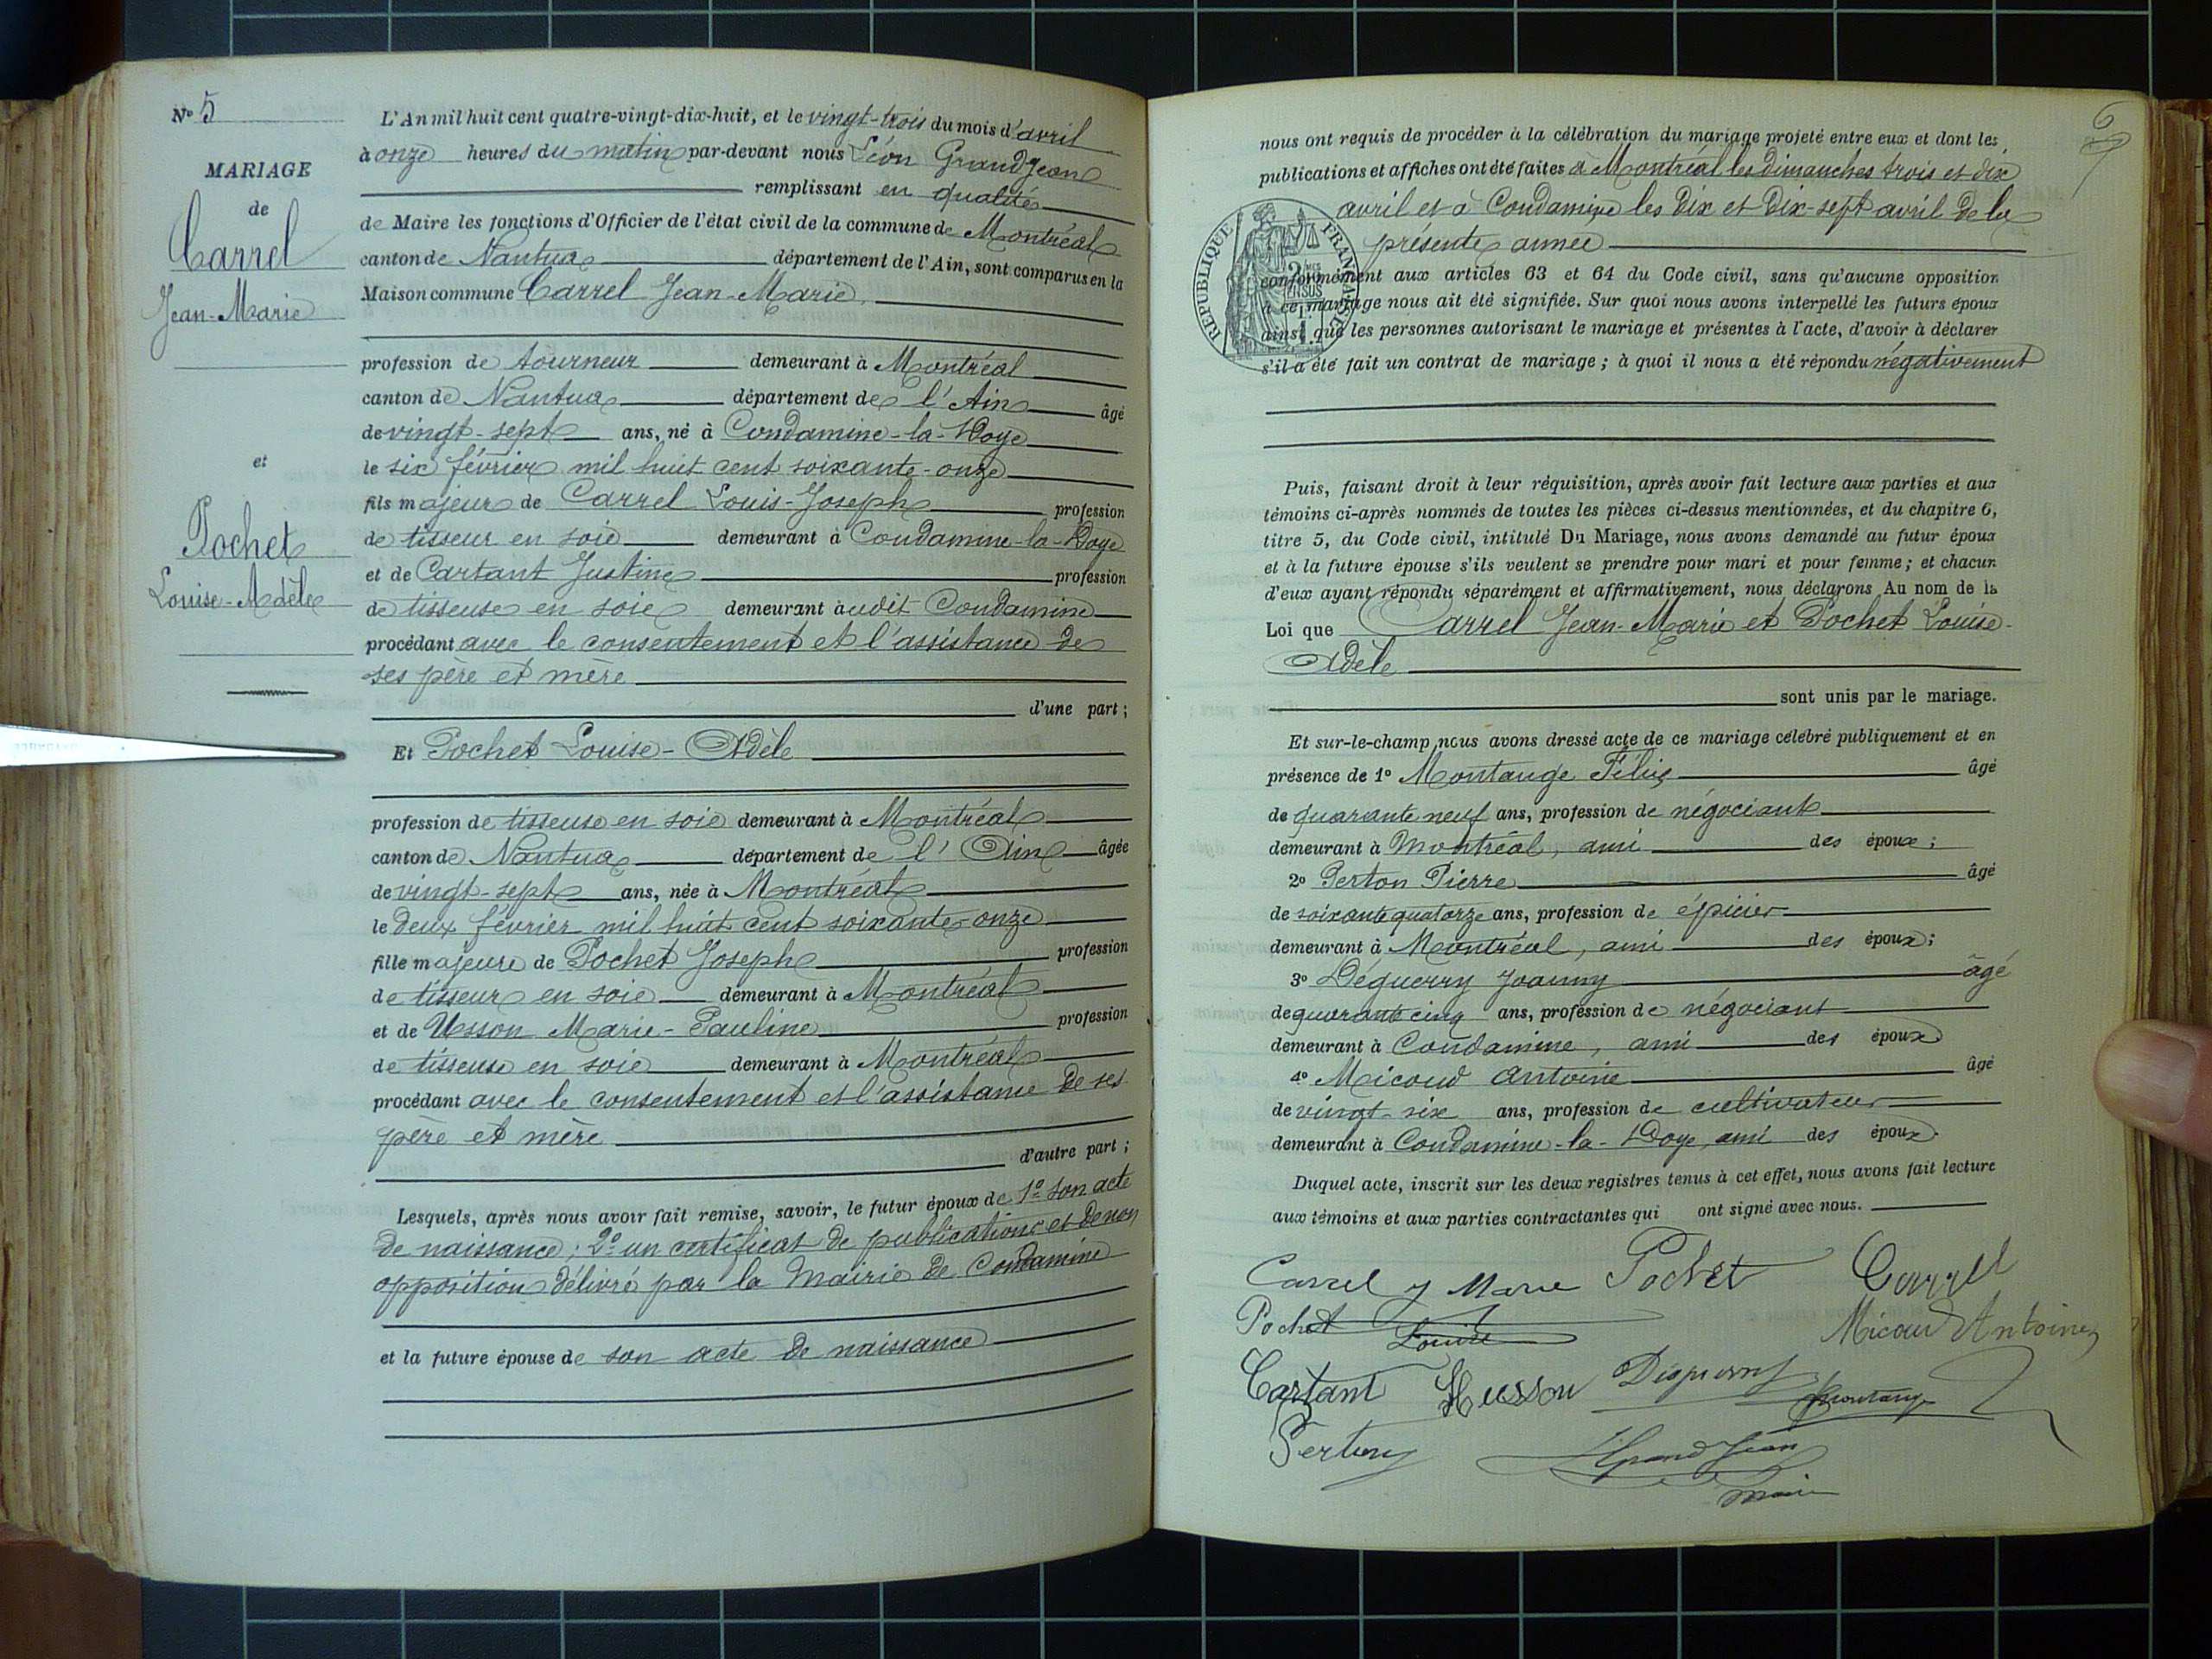 No 5
MARIAGE
de
Carrel
Jean-Marie
et
Pochet
Louise-Adèle
L'An mil huit cent quatre-vingt-dix-huit, et le vingt-trois du mois d'avril
à onze heures du matin par-devant nous Léon Grandjean
remplissant en qualité
de Maire les fonctions d'Officier de l'état civil de la commune de Montréal
canton de Nantua département de l'Ain, sont comparus en la
Maison commune Carrel Jean-Marie,
profession de tourneur demeurant à Montréal
canton de Nantua département de l'Ain âgé
de vingt-sept ans, né à Condamine-la-Doye
le six février mil huit cent soixante-onze
fils majeur de Carrel Louis-Joseph profession
de tisseur en soie demeurant à Condamine-la-Doye
et de Cartant Justine profession
de tisseuse en soie demeurant audit Condamine
procédant avec le consentement et l'assistance de
ses père et mère
d'une part;
Et Pochet Louise-Adèle
profession de tisseuse en soie demeurant à Montréal
canton de Nantua département de l'Ain âgée
de vingt-sept ans, née à Montréal
le deux février mil huit cent soixante-onze
fille majeure de Pochet Joseph profession
de tisseur en soie demeurant à Montréal
et de Usson Marie-Pauline profession
de tisseuse en soie demeurant à Montréal
procédant avec le consentement et l'assistance de ses
père et mère
d'autre part;
Lesquels, après nous avoir fait remise, savoir, le futur époux de 1º son acte
de naissance; 2º un certificat de publications et de non
opposition délivré par la Mairie de Condamine
et la future épouse de son acte de naissance
6
nous ont requis de procéder à la célébration du mariage projeté entre eux et dont les
publications et affiches ont été faites à Montréal les dimanches trois et dix
avril et à Condamine les dix et dix-sept avril de la
présente année
RÉPUBLIQUE FRANÇAISE
conformément aux articles 63 et 64 du Code civil, sans qu'aucune opposition
à ce mariage nous ait été signifiée. Sur quoi nous avons interpellé les futurs époux
ainsi que les personnes autorisant le mariage et présentes à l'acte, d'avoir à déclarer
s'il a été fait un contrat de mariage; à quoi il nous a été répondu négativement
Puis, faisant droit à leur réquisition, après avoir fait lecture aux parties et aux
témoins ci-après nommés de toutes les pièces ci-dessus mentionnées, et du chapitre 6,
titre 5, du Code civil, intitulé Du Mariage, nous avons demandé au futur époux
et à la future épouse s'ils veulent se prendre pour mari et pour femme; et chacun
d'eux ayant répondu séparément et affirmativement, nous déclarons Au nom de la
Loi que Carrel Jean-Marie et Pochet Louise-
Adèle
sont unis par le mariage.
Et sur-le-champ nous avons dressé acte de ce mariage célébré publiquement et en
présence de 1º Montange Félix âgé
de quarante neuf ans, profession de négociant
demeurant à Montréal, ami des époux;
2º Perton Pierre âgé
de soixante quatorze ans, profession de épicier
demeurant à Montréal, ami des époux;
3º Déguerry Joanny âgé
de quarante cinq ans, profession de négociant
demeurant à Condamine, ami des époux
4º Micoud Antoine âgé
de vingt-six ans, profession de cultivateur
demeurant à Condamine-la-Doye, ami des époux.
Duquel acte, inscrit sur les deux registres tenus à cet effet, nous avons fait lecture
aux témoins et aux parties contractantes qui ont signé avec nous.
Carrel J Marie Pochet Carrel
Pochet Louise Micoud Antoine
Cartant Husson Déguerry Montange
Perton LGrandJean
Maire